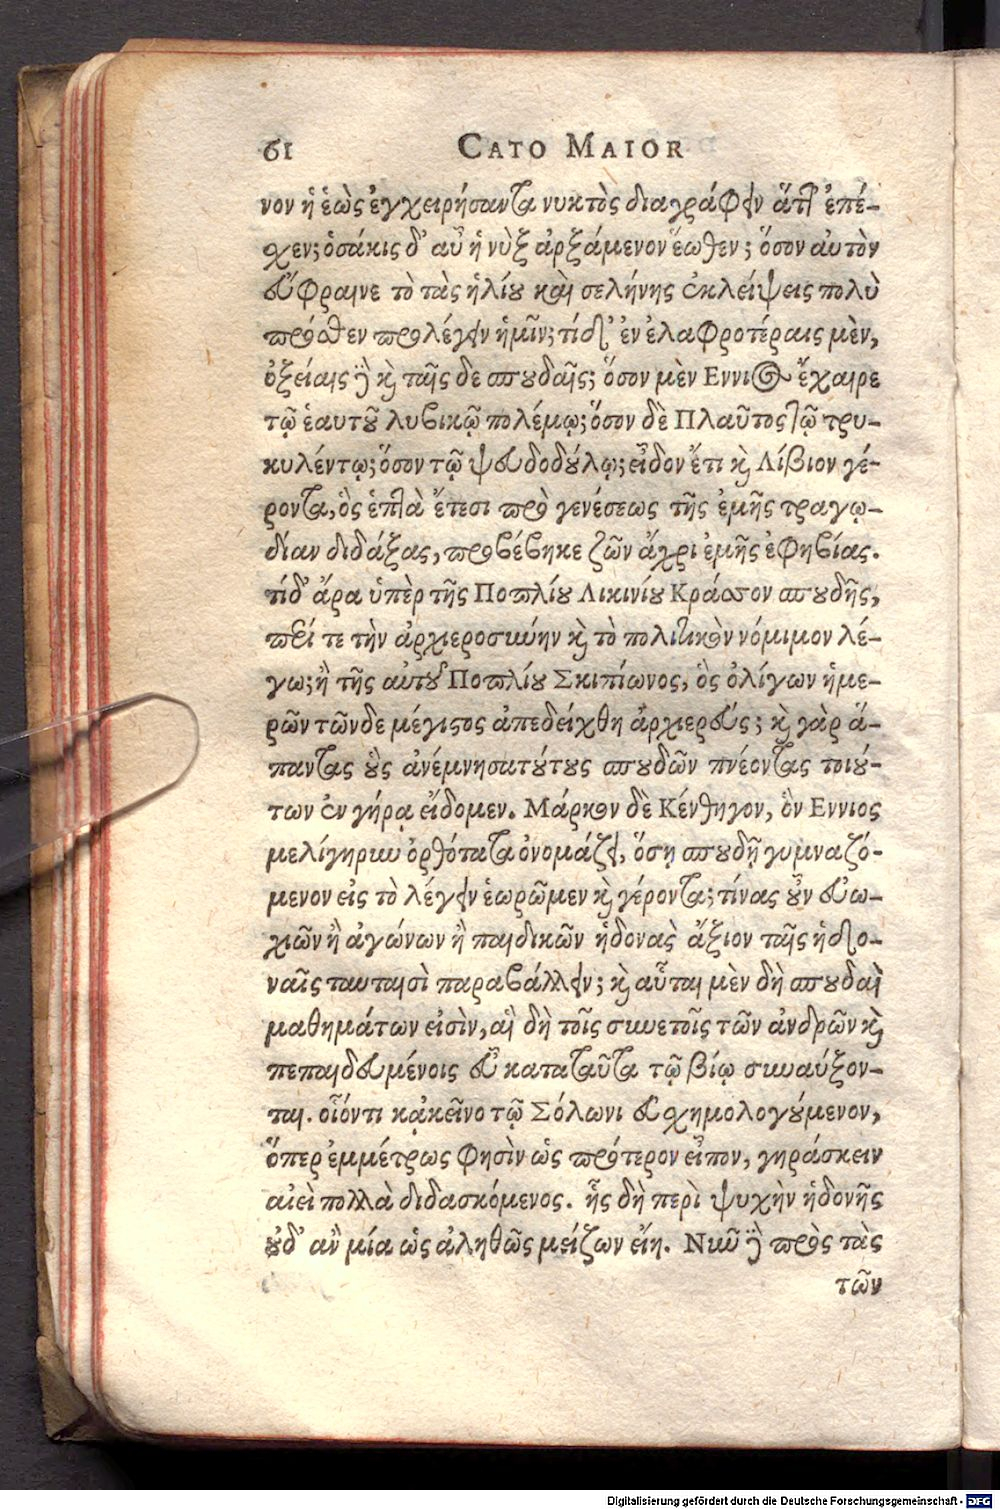 61 CATO MAIOR
νον ἡ ἑὼς ἐγχειρήσαντα νυκτὸς διαγράφειν ἅττ' ἐπέ-
χεν; ὁσάκις δ' αὖ ἡ νὺξ ἀρξάμενον ἕωθεν; ὅσον αὐτὸν
εὔφραινε τὸ τὰς ἡλίου καὶ σελήνης ἐκλείψεις πολὺ
πρόσθεν προλέγειν ἡμῖν; τί δ' ἐν ἐλαφροτέραις μὲν,
ὀξείαις γὲ καὶ ταῖς δε σπουδαῖς; ὅσον μὲν Εννιος ἔχαιρε
τῷ ἑαυτοῦ λυβικῷ πολέμῳ; ὅσον δὲ Πλαῦτος τῷ τρυ-
κυλέντῳ; ὅσον τῷ ψευδοδούλῳ; εἶδον ἔτι καὶ Λίβιον γέ-
ροντα, ὃς ἑπτὰ ἔτεσι πρὸ γενέσεως τῆς ἐμῆς τραγῳ-
δίαν διδάξας, προβέβηκε ζῶν ἄχρι ἐμῆς ἐφηβίας.
τίδ' ἄρα ὑπὲρ τῆς Ποπλίου Λικινίου Κράσσου σπουδῆς,
περί τε τὴν ἀρχιεροσύνην καὶ τὸ πολιτικὸν νόμιμον λέ-
γω; ἢ τῆς αὐτοῦ Ποπλίου Σκιπίωνος, ὃς ὀλίγων ἡμε-
ρῶν τῶνδε μέγιστος ἀπεδείχθη ἀρχιερεύς; καὶ γὰρ ἅ-
παντας οὓς ἀνέμνησα τούτους σπουδῶν πνέοντας τοιού-
των ἐν γήρᾳ εἴδομεν. Μάρκον δὲ Κέντηγον, ὃν Εννιος
μελίγηρυν ὀρθότατα ὀνομάζει, ὅσῃ σπουδῇ γυμναζό-
μενον εἰς τὸ λέγειν ἑωρῶμεν καὶ γέροντα; τίνας οὖν εὐω-
χιῶν ἢ ἀγώνων ἢ παιδικῶν ἡδονὰς ἄξιον ταῖς ἡδο-
ναῖς ταυταισὶ παραβάλλειν; καὶ αὗται μὲν δὴ σπουδαὶ
μαθημάτων εἰσὶν, αἳ δὴ τοῖς συνετοῖς τῶν ἀνδρῶν καὶ
πεπαιδευμένοις εὖ κατὰ ταῦτα τῷ βίῳ συναύξον-
ται. οἷόντι κᾀκεῖνο τῷ Σόλωνι εὐσχημολογούμενον,
ὅπερ ἐμμέτρως φησὶν ὡς πρότερον εἶπον, γηράσκειν
αἰεὶ πολλὰ διδασκόμενος. ἧς δὴ περὶ ψυχὴν ἡδονῆς
οὐδ' ἂν μία ὡς ἀληθῶς μείζων εἴη. Νῦν γὲ πρὸς τὰς
τῶν
Digitalisierung gefördert durch die Deutsche Forschungsgemeinschaft - DFG